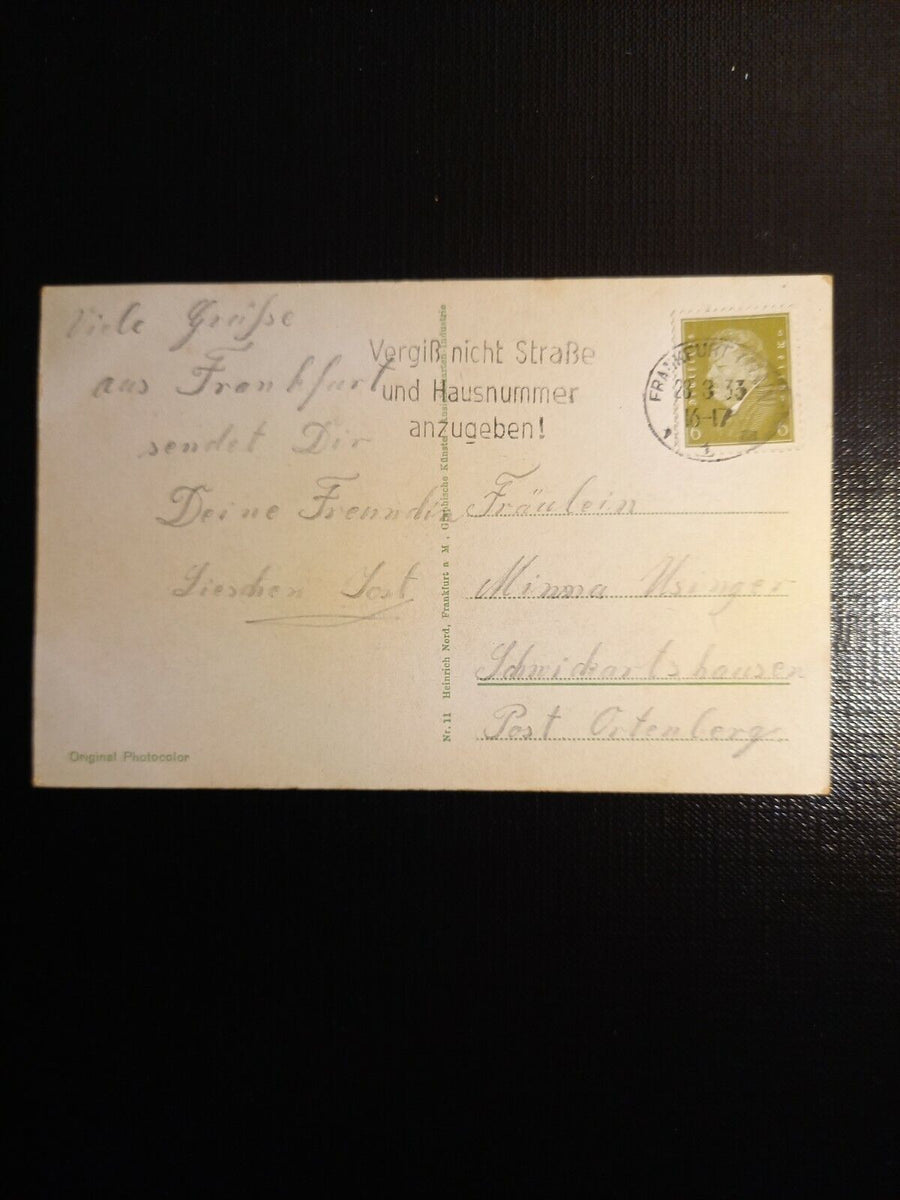 Viele Grüße
aus Frankfurt
sendet Dir
Deine Freundin
Lieschen Jost
Original Photocolor
Nr. 11 Heinrich Nord, Frankfurt a M , Graphische Künste Ansichtskarten-Industrie
Vergiß nicht Straße
und Hausnummer
anzugeben!
FRANKFURT
33
16-17
1
6 6
Fräulein
Minna Usinger
Schwickartshausen
Post Ortenberg